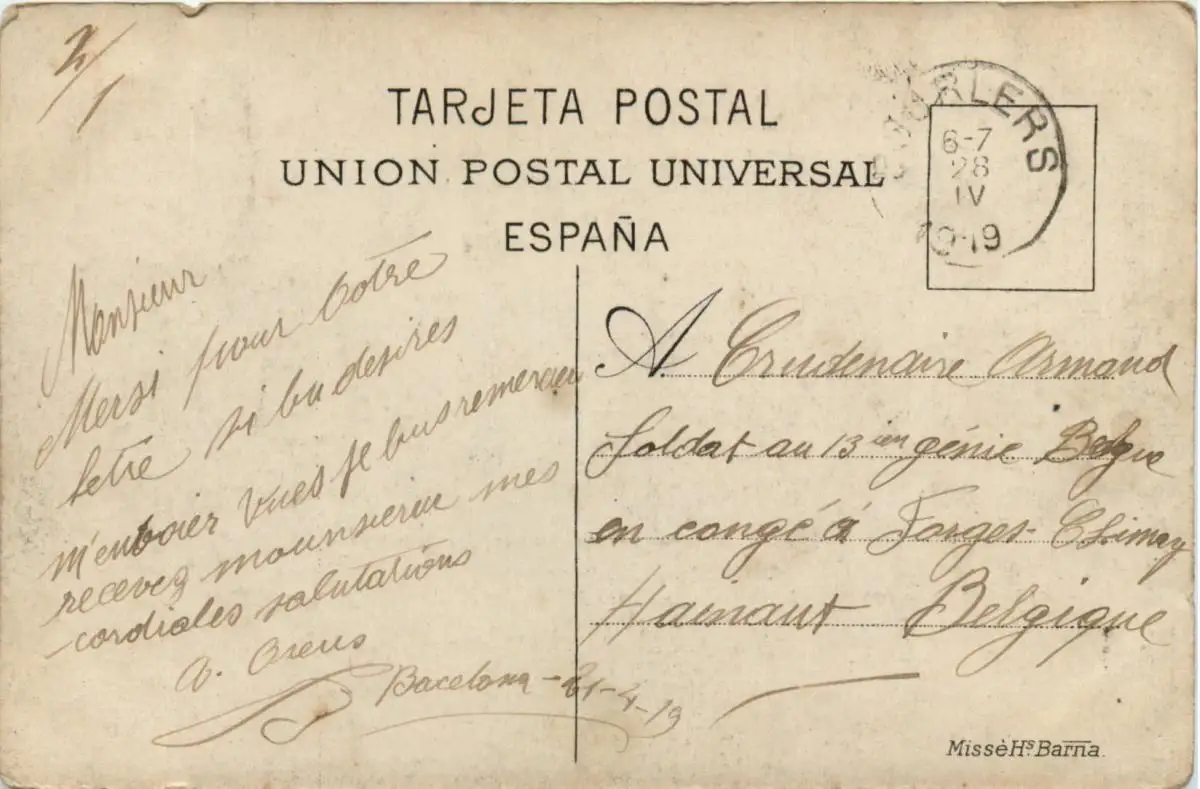 2/1
TARJETA POSTAL
UNION POSTAL UNIVERSAL
ESPAÑA
6-7
28
IV
19-19
Monsieur
Mersi pour botre
letre si bu desires
m'enboier vues je bus remercieu
recevez mounsieur mes
cordiales salutations
A. Orens
Barcelona - 21-4-19
A Crudenaire Armand
Soldat au 13 ien génie Belge
en congé à Forges-Chimay
Hainaut Belgique
Missè Hs. Barna.